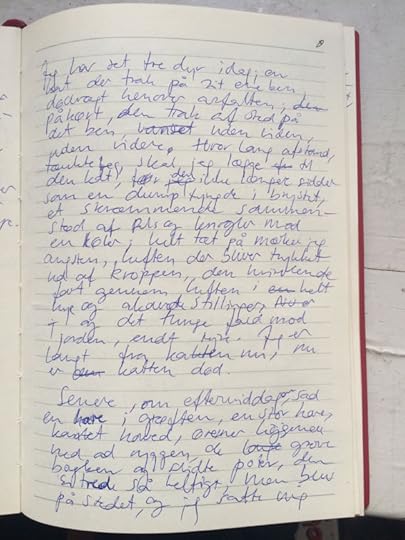 8
Jeg har set tre dyr idag; en
kat der trak på sit ene ben,
dødtræt henover asfalten, den
påkørt, den trak af sted på
det ben, uden viden,
uden videre. Hvor lang afstand,
tænkte jeg, skal jeg lægge til
den kat, før den ikke længer sidder
som en dump tyngde i brystet,
et skræmmende sammen-
stød af pels og knogler mod
en køler; helt tæt på mærker jeg
angsten, luften der bliver trykket
ud af kroppen, den
fart gennem luften i en helt
nye og akavede stillinger,
og det tunge mod
jorden, endt Jeg er
langt fra katten nu, nu
er katten død.
Senere, om eftermiddagen, sad
en hare i grøften, en stor hare,
kantet hoved, ørerne liggende
ned ad ryggen, de lange grove
bagben og slidte poter, den
så heftigt, men blev
på stedet, og jeg satte mig